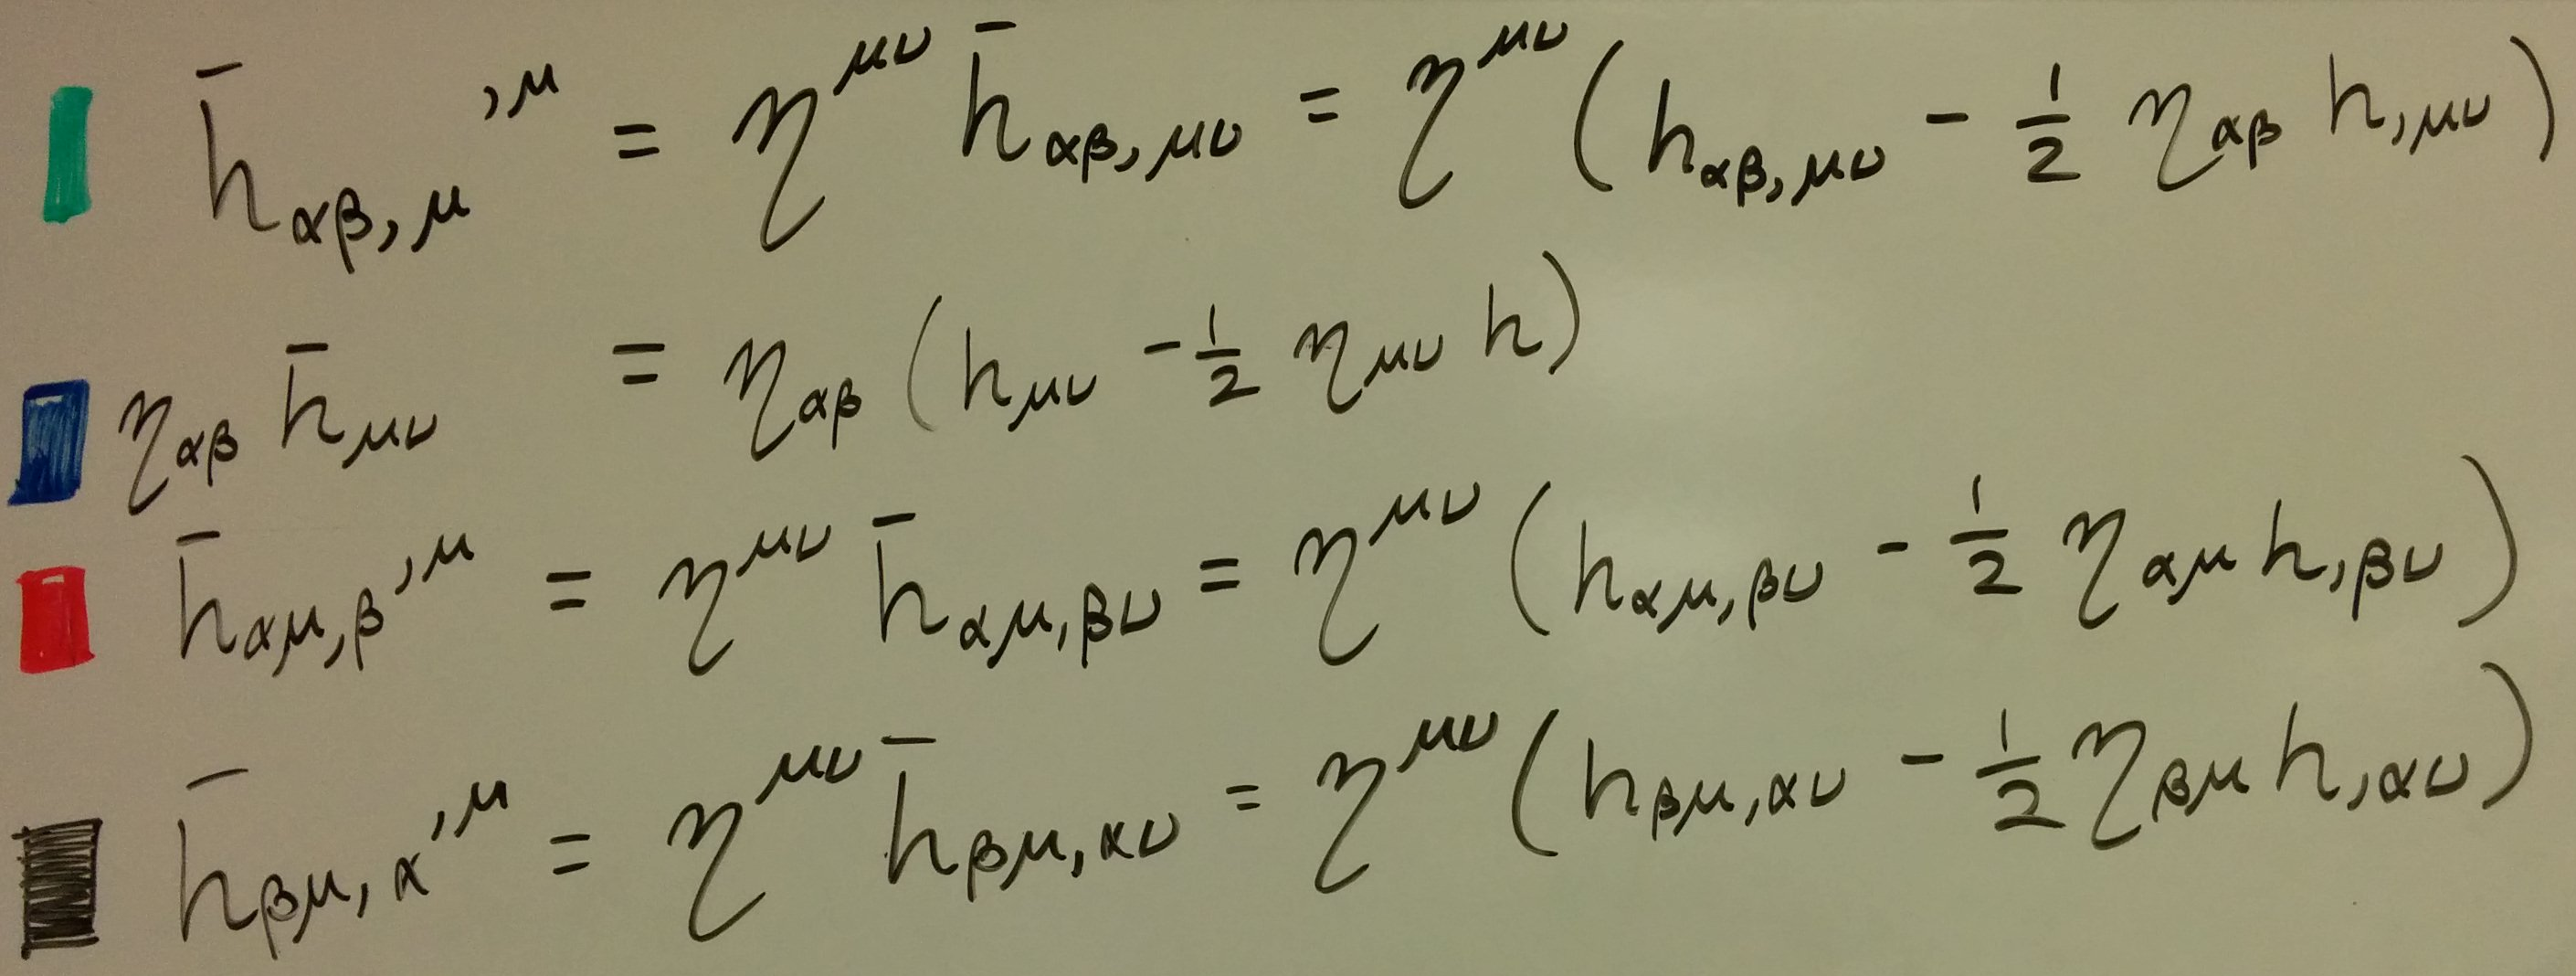 h̄_{αβ,μ}^{,μ} = η^{μν} h̄_{αβ,μν} = η^{μν} (h_{αβ,μν} - 1/2 η_{αβ} h_{,μν})
η_{αβ} h̄_{μν} = η_{αβ} (h_{μν} - 1/2 η_{μν} h)
h̄_{αμ,β}^{,μ} = η^{μν} h̄_{αμ,βν} = η^{μν} (h_{αμ,βν} - 1/2 η_{αμ} h_{,βν})
h̄_{βμ,α}^{,μ} = η^{μν} h̄_{βμ,αν} = η^{μν} (h_{βμ,αν} - 1/2 η_{βμ} h_{,αν})